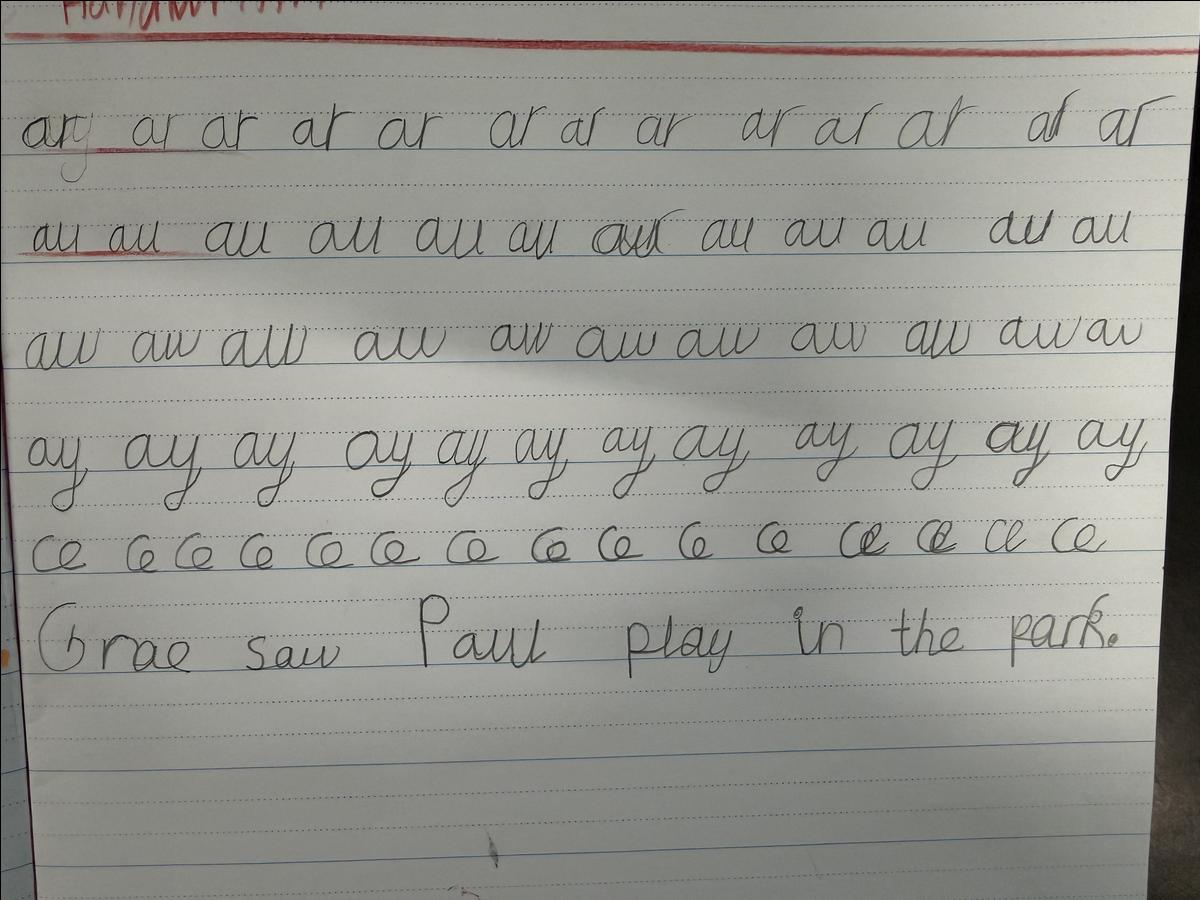 ary ar ar ar ar ar ar ar ar ar ar ar ar
au au au au au au aur au au au au au
aw aw aw aw aw aw aw aw aw aw aw
ay ay ay ay ay ay ay ay ay ay ay ay
ce ce ce ce ce ce ce ce ce ce ce ce ce ce ce
Grae saw Paul play in the park.